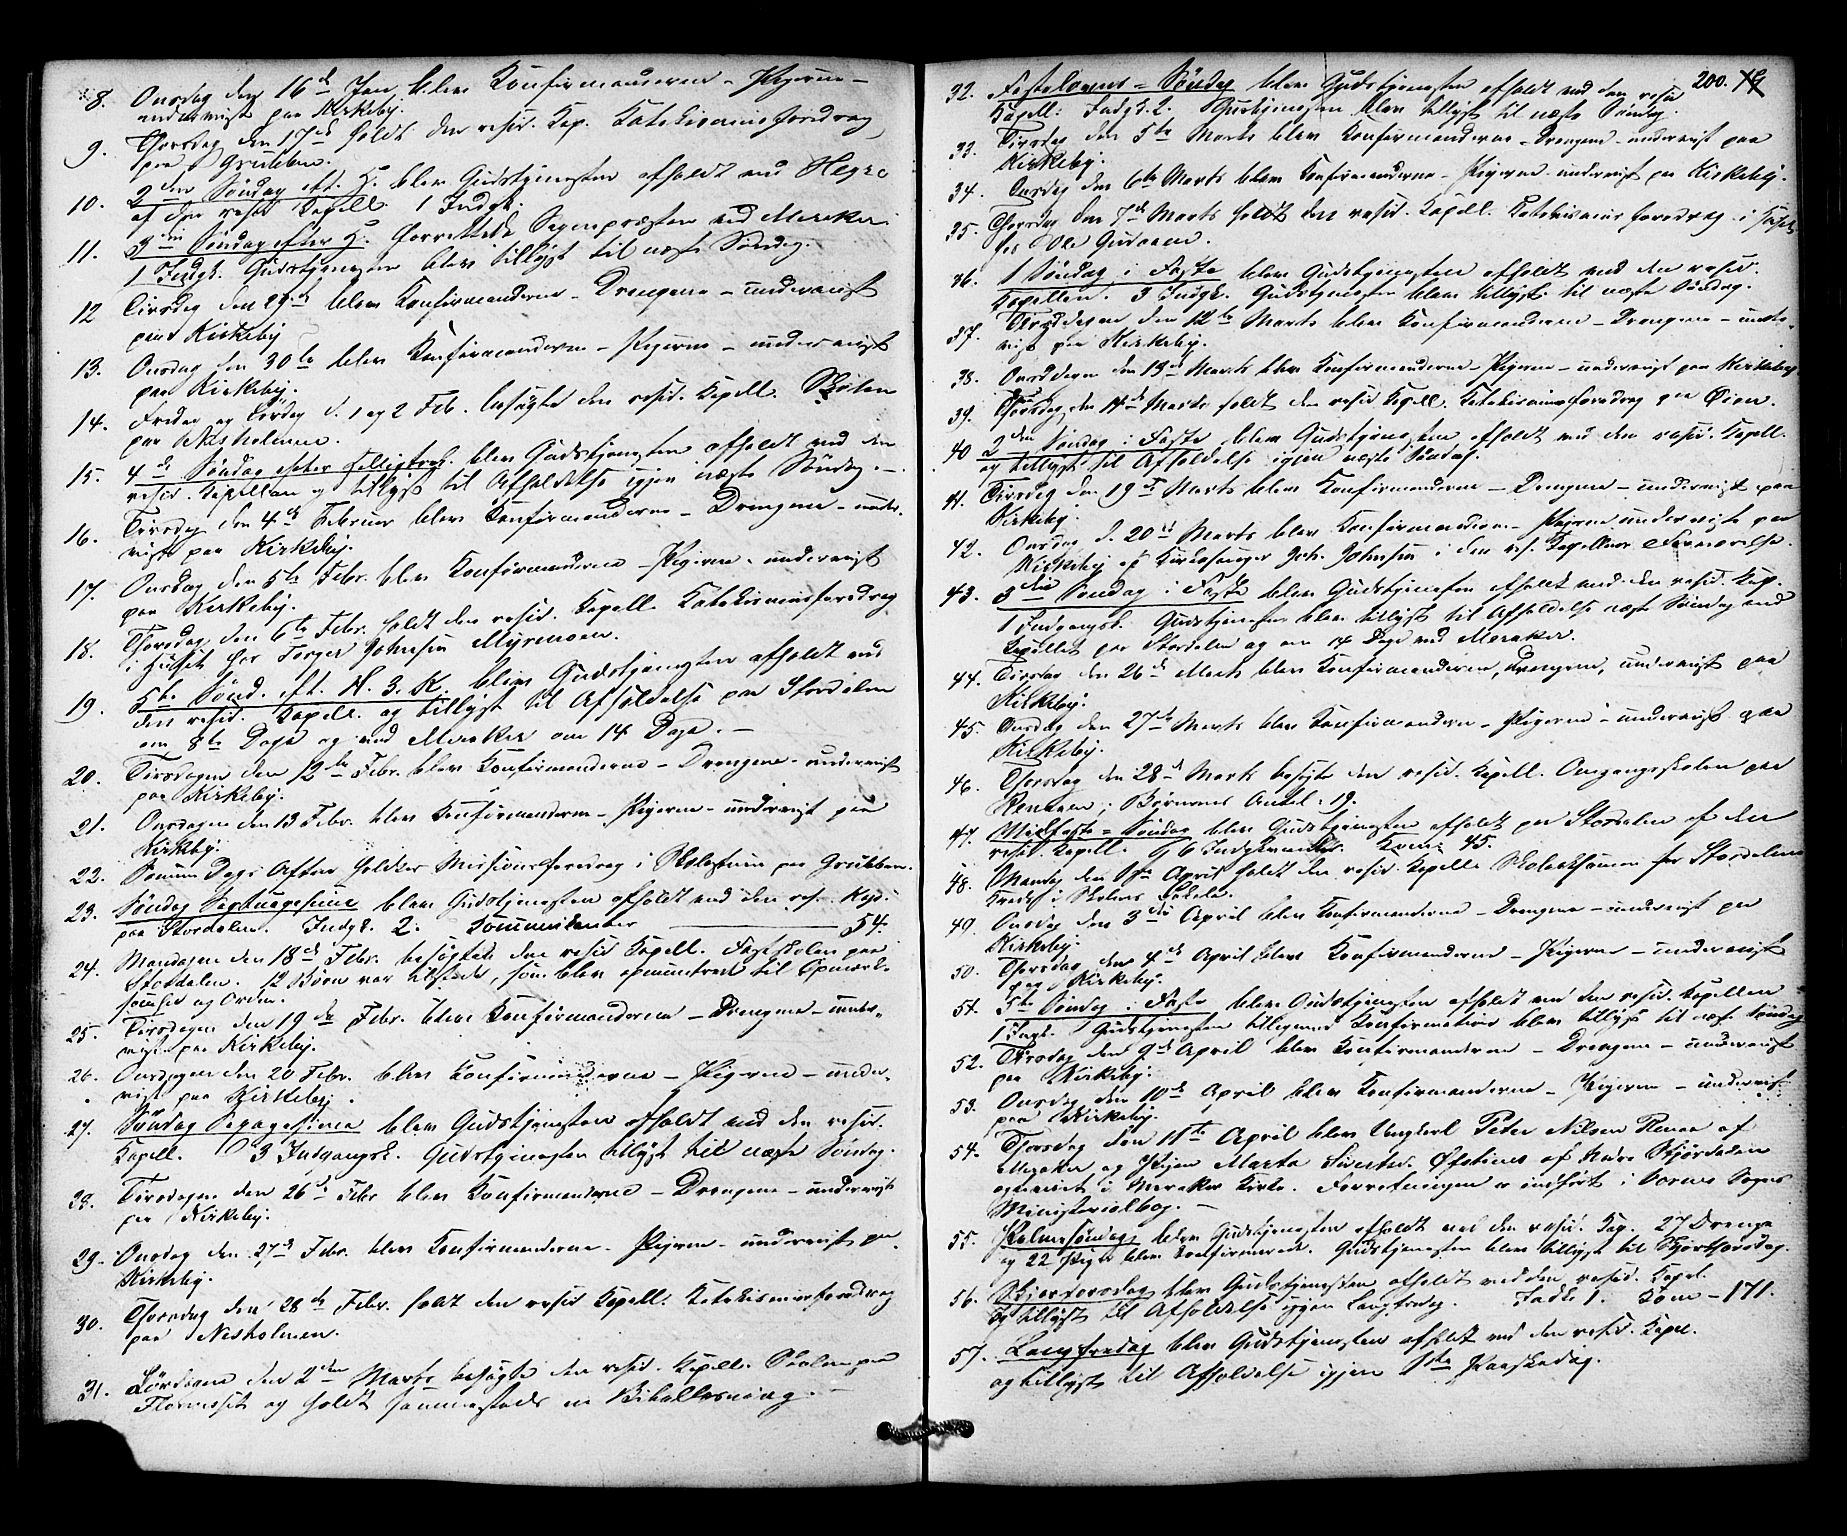 8. Onsdag den 16de Jan. blev Konfirmanderne – Pigerne –
undervist paa Kirkeby.
9. Thorsdag den 17de holdt den resid. Kap. Katekismusforedrag
paa Grubben.
10. 2den Søndag eft. H. blev Gudstjenesten afholdt ved Hegre
af den resid. Kapell. 1 Indgk.
11. 3die Søndag efter H. forrettede Sognepræsten ved Meraker.
1 Indgk. Gudstjenesten blev tillyst til næste Søndag.
12 Tirsdag den 29de blev Konfirmanderne – Drengene – undervist
paa Kirkeby
13. Onsdag den 30te blev Konfirmanderne – Pigerne – undervist
paa Kirkeby.
14. Fredag og Lørdag d. 1 og 2 Feb. besøgte den resid. Kapell. Skolen
paa Nesholmen.
15. 4de Søndag efter Helligtrek. blev Gudstjenesten afholdt ved den
resid. Kapellan og tillyst til Afholdelse igjen næste Søndag. –
16. Tirsdag den 4de Februar blev Konfirmanderne – Drengene – under-
vist paa Kirkeby.
17. Onsdag den 5te Febr. blev Konfirmanderne – Pigerne – undervist
paa Kirkeby.
18. Thorsdag den 6te Febr. holdt den resid. Kapell. Katekismusforedrag
i Huset hos Torger Johnsen Myrmoen.
19. 5te Sønd. eft. H. 3. K. blev Gudstjenesten afholdt ved
den resid. Kapell. og tillyst til Afholdelse paa Stordalen
om 8te Dage og ved Meraker om 14 Dage. –
20. Tirsdagen den 12te Febr. blev Konfirmanderne – Drengene – undervist
paa Kirkeby.
21. Onsdagen den 13 Febr. blev Konfirmanderne – Pigerne – undervist paa
Kirkeby.
22. Samme Dags Aften holdtes Missionsforedrag i Skolestuen paa Grubben.
23. Søndag Septuagesima blev Gudstjenesten afholdt ved den res. Kap.
paa Stordalen. Indgk. 2. Kommunikanter 54.
24. Mandagen den 18de Febr. besøgtede den resid Kapell. Fastskolen paa
Stordalen. 12 Børn var tilstede, som blev opmuntret til Opmærk-
somhed og Orden.
25. Tirsdagen den 19de Febr. blev Konfirmanderne – Drengene – under-
vist paa Kirkeby.
26. Onsdagen den 20 Febr. blev Konfirmanderne – Pigerne – under-
vist paa Kirkeby.
27. Søndag Sexagesima blev Gudstjenesten afholdt ved den resid.
Kapell. 3 Indgangsk. Gudstjenesten tillyst til næste Søndag.
28. Tirsdagen den 26de Febr blev Konfirmanderne – Drengene – undervist
paa Kirkeby.
29. Onsdag den 27de Febr. blev Konfirmanderne – Pigerne – undervist paa
Kirkeby.
30. Thorsdag den 28de Febr. holdt den resid Kapell. Katekismusforedrag
paa Nesholmen.
31. Lørdagen den 2den Marts besøgte den resid. Kapell. Skolen paa
Flornesset og holdt sammesteds en Bibellæsning. –
200.
32. Fastelavns-Søndag blev Gudstjenesten afholdt ved den resid
Kapell: Indgk. 2. Gudstjenesten blev tillyst til næste Søndag.
33. Tirsdag den 5te Marts blev Konfirmanderne – Drengene – undervist paa
Kirkeby.
34. Onsdag den 6te Marts blev Konfirmanderne – Pigerne – undervist paa Kirkeby.
35. Thorsdag den 7de Marts holdt den resid. Kapell. Katekismusforedrag i Huset
hos Ole Gudaaen.
36. 1 Søndag i Faste blev Gudstjenesten afholdt ved den resid.
Kapellan. 3 Indgk. Gudstjenesten blev tillyst til næste Søndag.
37. Tirsdagen den 12te Marts blev Konfirmanderne – Drengene – under-
vist paa Kirkeby.
38. Onsdagen den 13de Marts blev Konfirmanderne – Pigerne – undervist paa Kirkeby.
39. Thorsdag den 14de Marts holdt den resid Kapell. Katekismusforedrag paa Øien.
40 2den Søndag i Faste blev Gudstjenesten afholdt ved den resid. Kapell.
og tillyst til Afholdelse igjen næste Søndag.
41. Tirsdag den 19de Marts blev Konfirmanderne – Drengene – undervist paa
Kirkeby.
42. Onsdag d. 20de Marts blev Konfirmanderne – Pigerne undervist paa
Kirkeby af Kirkesanger Joh. Johnsen i den res. Kapellans Fraværelse.
43. 3die Søndag i Faste blev Gudstjenesten afholdt ved den resid. Kap.
1 Indgangsk. Gudstjenesten blev tillyst til Afholdelse næste Søndag ved
Kapellet paa Stordalen og om 14 Dage ved Meraker.
44. Tirsdag den 26de Marts blev Konfirmanderne, Drengene, undervist paa
Kirkeby.
45. Onsdag den 27de Marts blev Konfirmanderne – Pigerne – undervist paa
Kirkeby.
46. Thorsdag den 28de Marts besøgte den resid. Kapell. Omgangsskolen paa
Renaaen; Børnenes Antal: 19.
47. Midfaste-Søndag blev Gudstjenesten afholdt paa Stordalen af den
resid. Kapell. 6 Indgkvinder. Kom: 45.
48. Mandag den 1ste April holdt den resid. Kapell. Skoleeksamen for Stordalens
Kreds i Skolens Lokale.
49. Onsdag den 3die April blev Konfirmanderne – Drengene – undervist paa
Kirkeby.
50. Thorsdag den 4de April blev Konfirmanderne – Pigerne – undervist
paa Kirkeby.
51. 5te Søndag i Faste blev Gudstjenesten afholdt ved den resid. Kapellan
1 Indk. Gudstjenesten tilligemed Konfirmation blev tillyst til næste Søndag
52. Tirsdag den 9de April blev Konfirmanderne – Drengene – undervist
paa Kirkeby.
53. Onsdag den 10de April blev Konfirmanderne – Pigerne – undervist
paa Kirkeby.
54. Thorsdag den 11te April blev Ungkarl Peder Nilsen Renaa af
Meraker og Pigen Marta Sivertsd. Øfstines af Nedre Stjørdalen
egteviet i Meraker Kirke. Forretningen er indført i Værnes Sogns
Ministerialbog. –
55. Palmesøndag blev Gudstjenesten afholdt ved den resid. Kap. 27 Drenge
og 22 Piger blev konfirmerede. Gudstjenesten blev tillyst til Skjærthorsdag.
56. Skjærthorsdag blev Gudstjenesten afholdt ved den resid. Kapel.
og tillyst til Afholdelse igjen Langfredag. Indk: 1. Kom – 171.
57. Langfredag blev Gudstjenesten afholdt ved den resid. Kapel.
og tillyst til Afholdelse igjen 1ste Paaskedag.